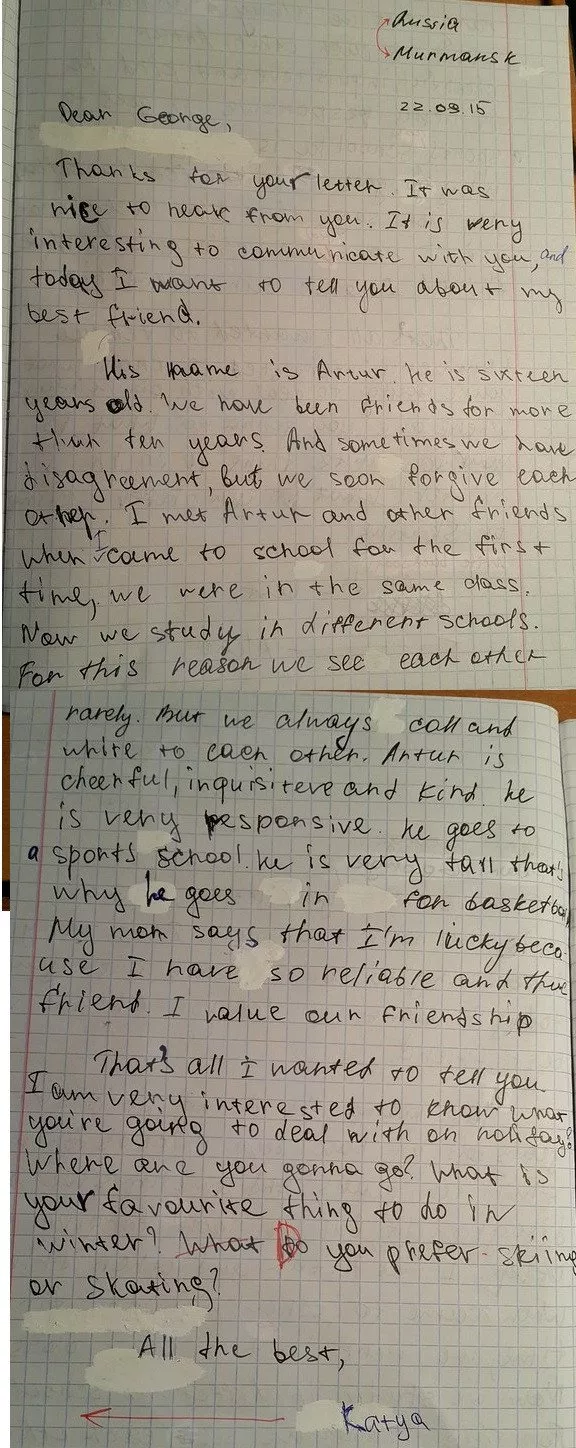 Russia
Murmansk
22.09.15
Dear George,
Thanks for your letter. It was
nice to hear from you. It is very
interesting to communicate with you, and
today I want to tell you about my
best friend.
His name is Artur. He is sixteen
years old. We have been friends for more
than ten years. And sometimes we have
disagreement, but we soon forgive each
other. I met Artur and other friends
when I came to school for the first
time, we were in the same class.
Now we study in different schools.
For this reason we see each other
rarely. But we always call and
white to each other. Artur is
cheerful, inquisiteve and kind. he
is very responsive. he goes to
a sports school. he is very tall that's
why he goes in for basketball
My mom says that I'm lucky beca
use I have so reliable and true
friend. I value our friendship
That's all I wanted to tell you.
I am very interested to know what
you're going to deal with on holiday?
Where are you gonna go? What is
your favourite thing to do in
winter? What do you prefer - skiing
or skating?
All the best,
Katya